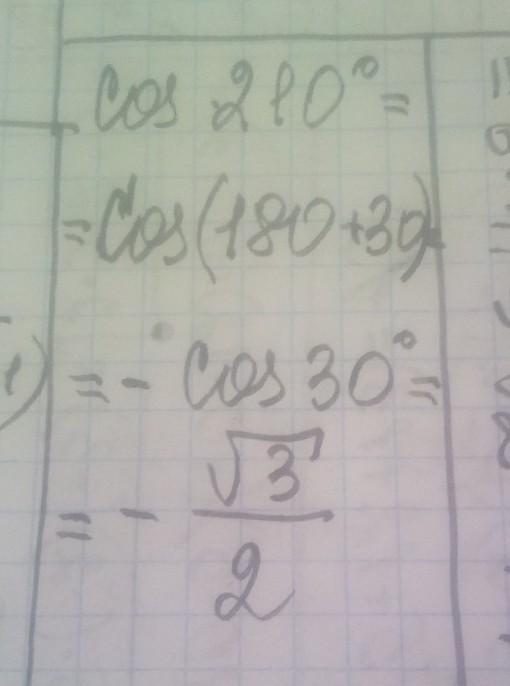 cos 210° =
= cos(180+30)
= - cos 30° =
= - √3/2